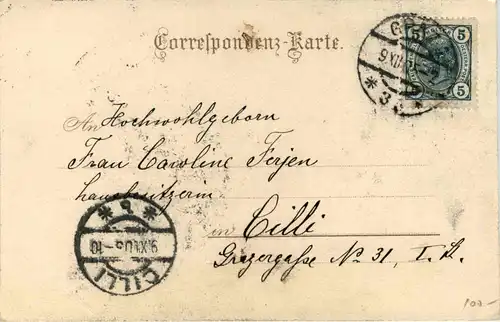 Correspondenz-Karte.
5 5
5
9 XII
3
An Hochwohlgeborn
Frau Caroline Ferjen
Hausbesitzerin
in Cilli
Grazergaße No 31, I. St.
CILLI
9.XII.05-10
* b *
100-